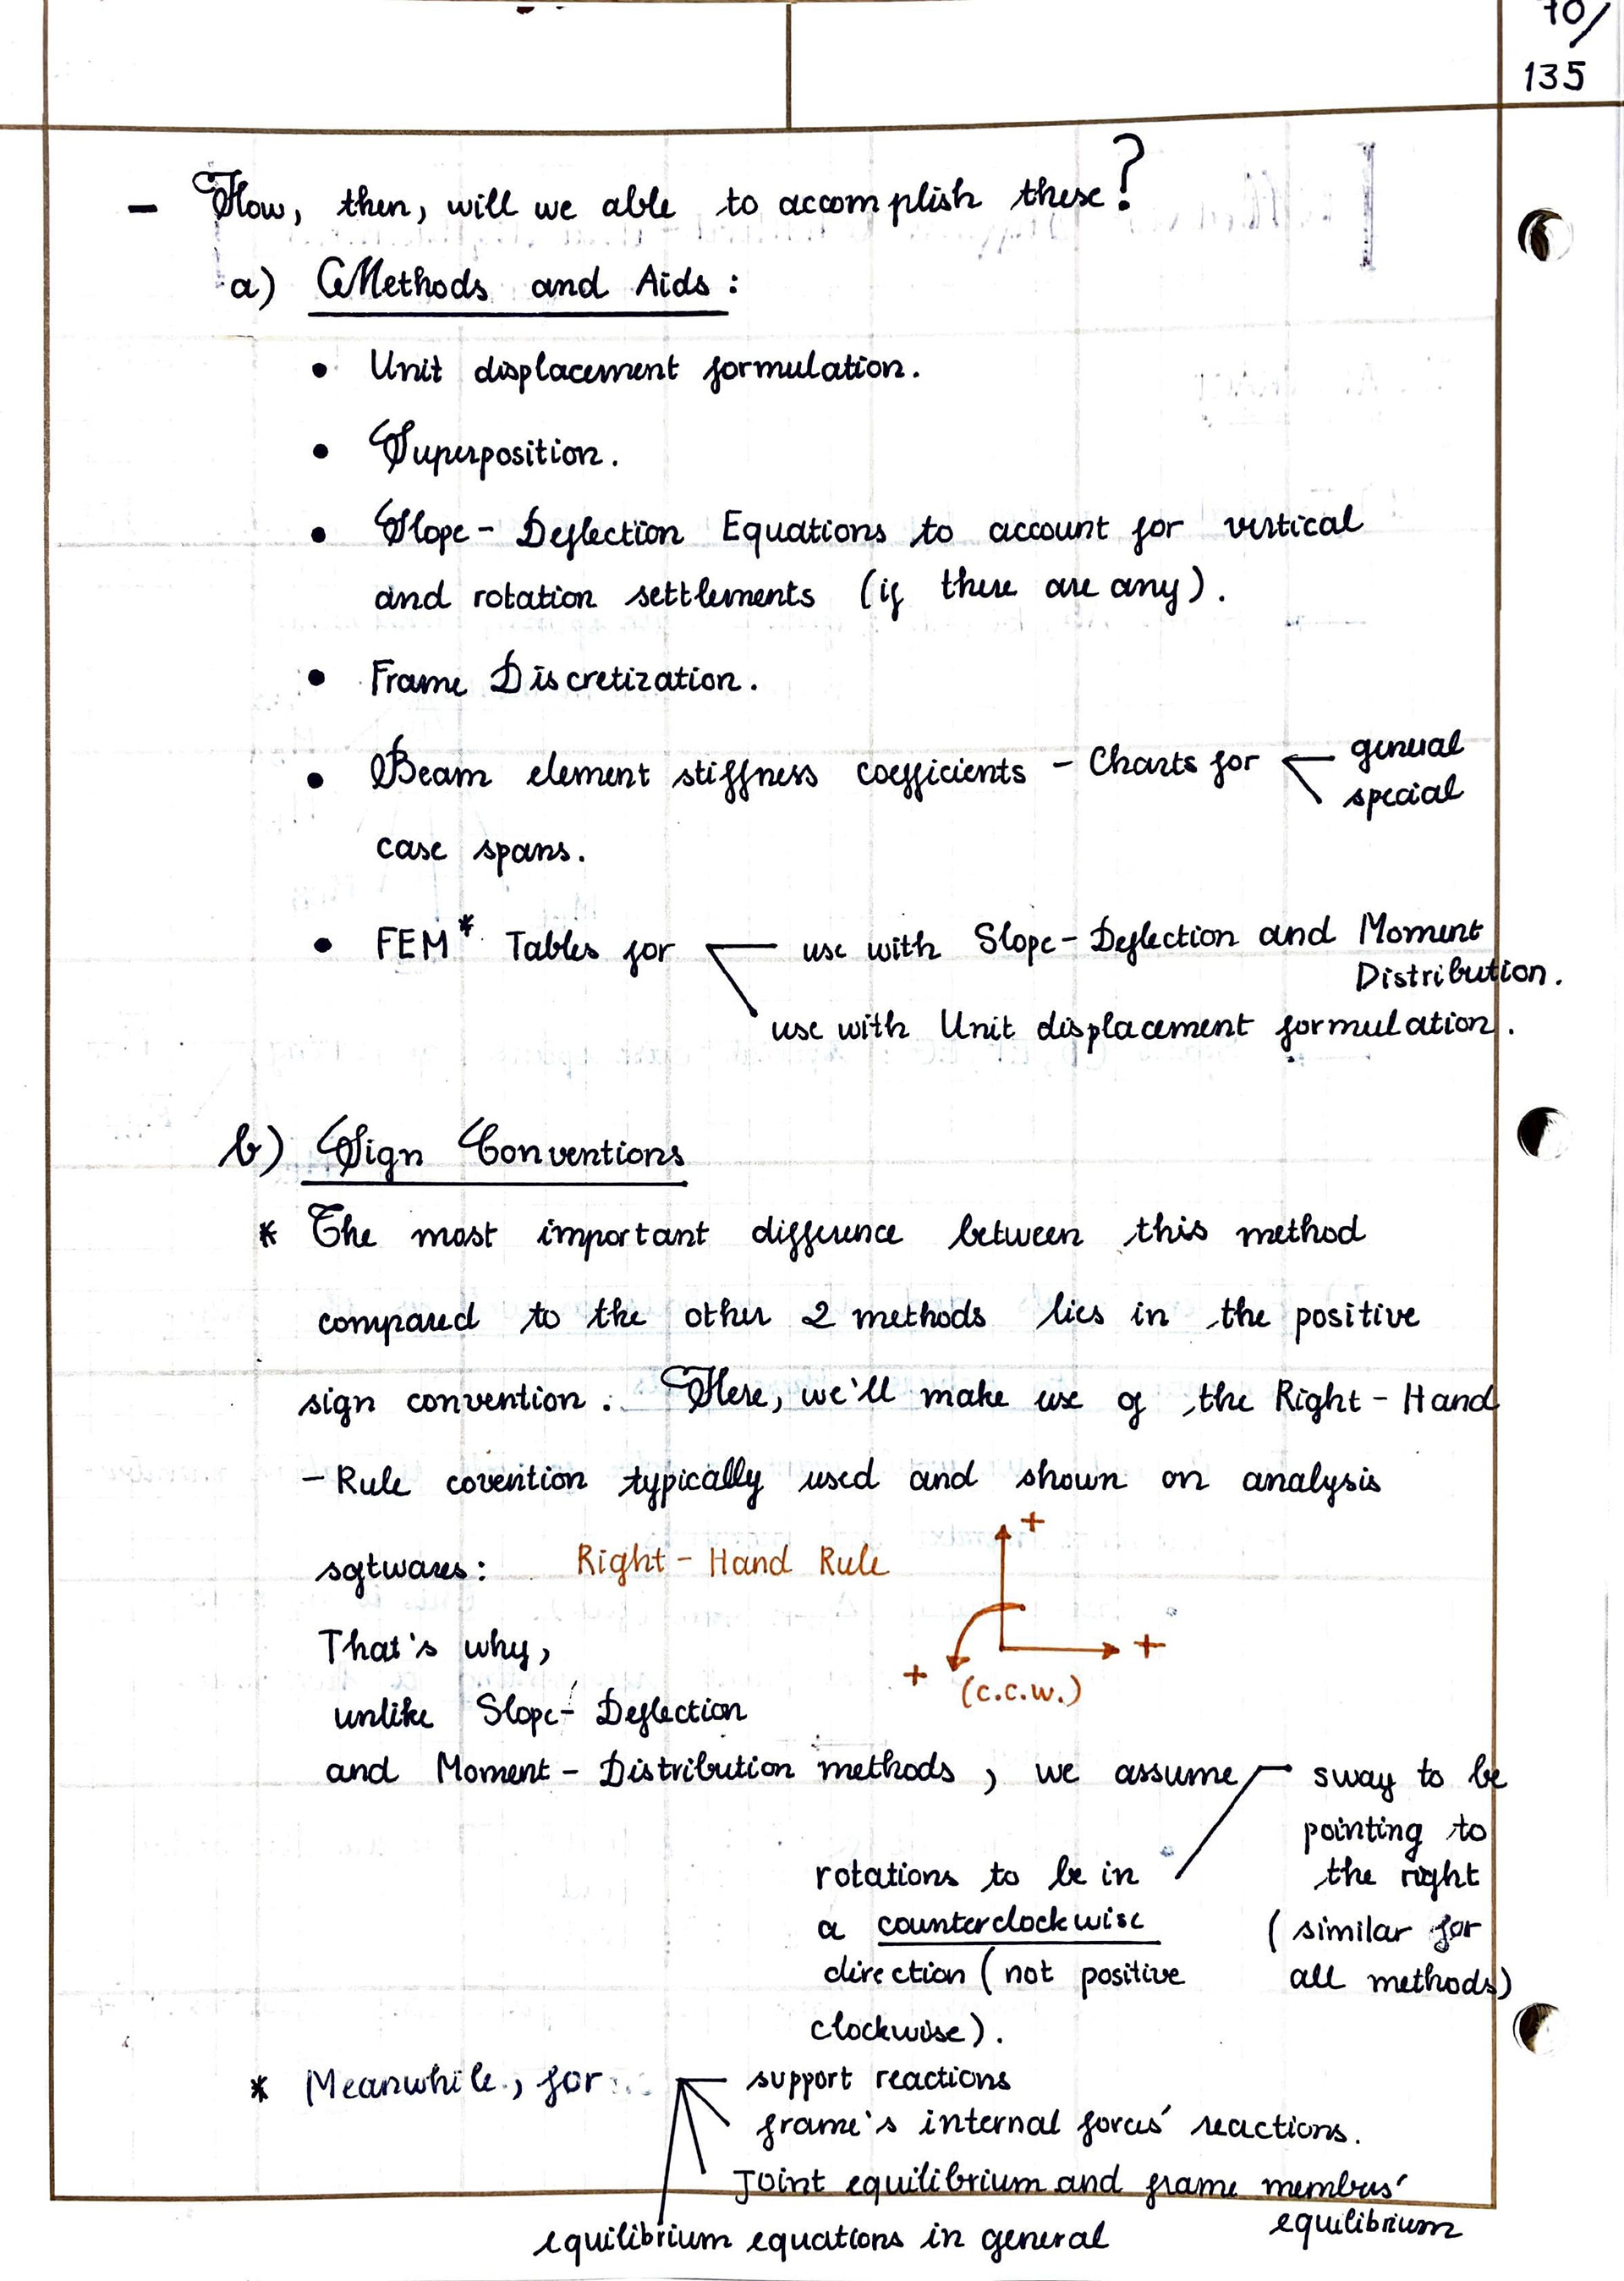 70/
135
- How, then, will we able to accomplish these?
a) Methods and Aids:
• Unit displacement formulation.
• Superposition.
• Slope - Deflection Equations to account for vertical
and rotation settlements (if there are any).
• Frame Discretization.
• Beam element stiffness coefficients - Charts for general
special
case spans.
• FEM* Tables for use with Slope-Deflection and Moment
Distribution.
use with Unit displacement formulation.
b) Sign Conventions
* The most important difference between this method
compared to the other 2 methods lies in the positive
sign convention. Here, we'll make use of the Right - Hand
- Rule covention typically used and shown on analysis
softwares: Right - Hand Rule
+
+
+
(c.c.w.)
That's why,
unlike Slope - Deflection
and Moment - Distribution methods, we assume sway to be
pointing to
the right
(similar for
all methods)
rotations to be in
a counterclockwise
direction (not positive
clockwise).
* Meanwhile, for support reactions
frame's internal forces' reactions.
Joint equilibrium and frame members'
equilibrium
equilibrium equations in general